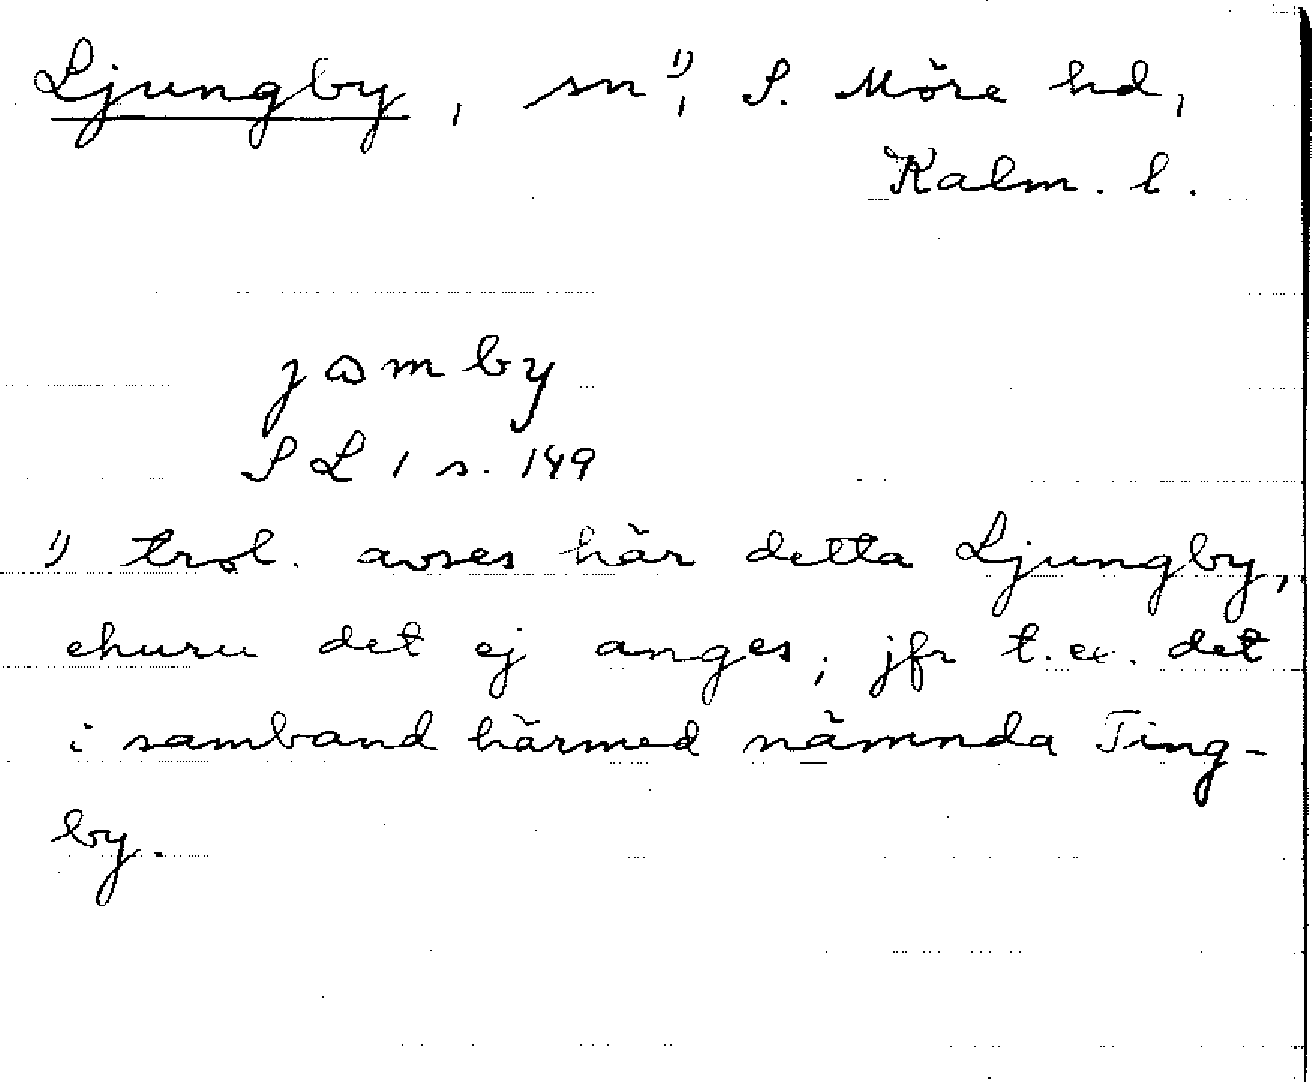 Ljungby, sn¹⁾, S. Möre hd,
Kalm. l.
SL 1 s. 149
1) trol. avses här detta Ljungby,
ehuru det ej anges, jfr t.ex. det
i samband härmed nämnda Ting-
by.